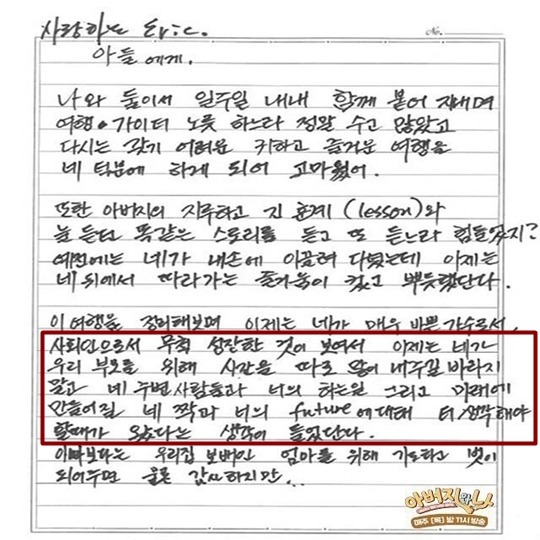 사랑하는 Eric.
No.
아들에게.
나와 둘이서 일주일 내내 함께 붙어 지내며
여행·가이더 노릇 하느라 정말 수고 많았고
다시는 갖기 어려운 귀하고 즐거운 여행을
네 덕분에 하게 되어 고마웠어.
또한 아버지의 지루하고 긴 훈계 (lesson)와
늘 듣던 똑같은 스토리를 듣고 또 듣느라 힘들었지?
예전에는 네가 내손에 이끌려 다녔는데 이제는
네 뒤에서 따라가는 즐거움이 컸고 뿌듯했단다.
이 여행을 정리해보며 이제는 네가 매우 바쁜 가수로서,
사회인으로서 무척 성장한 것이 보여서 이제는 네가
우리 부모를 위해 시간을 따로 많이 내주길 바라지
말고 네 주변사람들과 너의 하는일 그리고 미래에
만들어질 네 짝과 너의 future에 대해 더 생각해야
할때가 왔다는 생각이 들었단다.
아빠보다는 우리집 보배인 엄마를 위해 기도하고 벗이
되어주면 물론 감사하지만...
아버지와 나
매주 [목] 밤 11시 방송